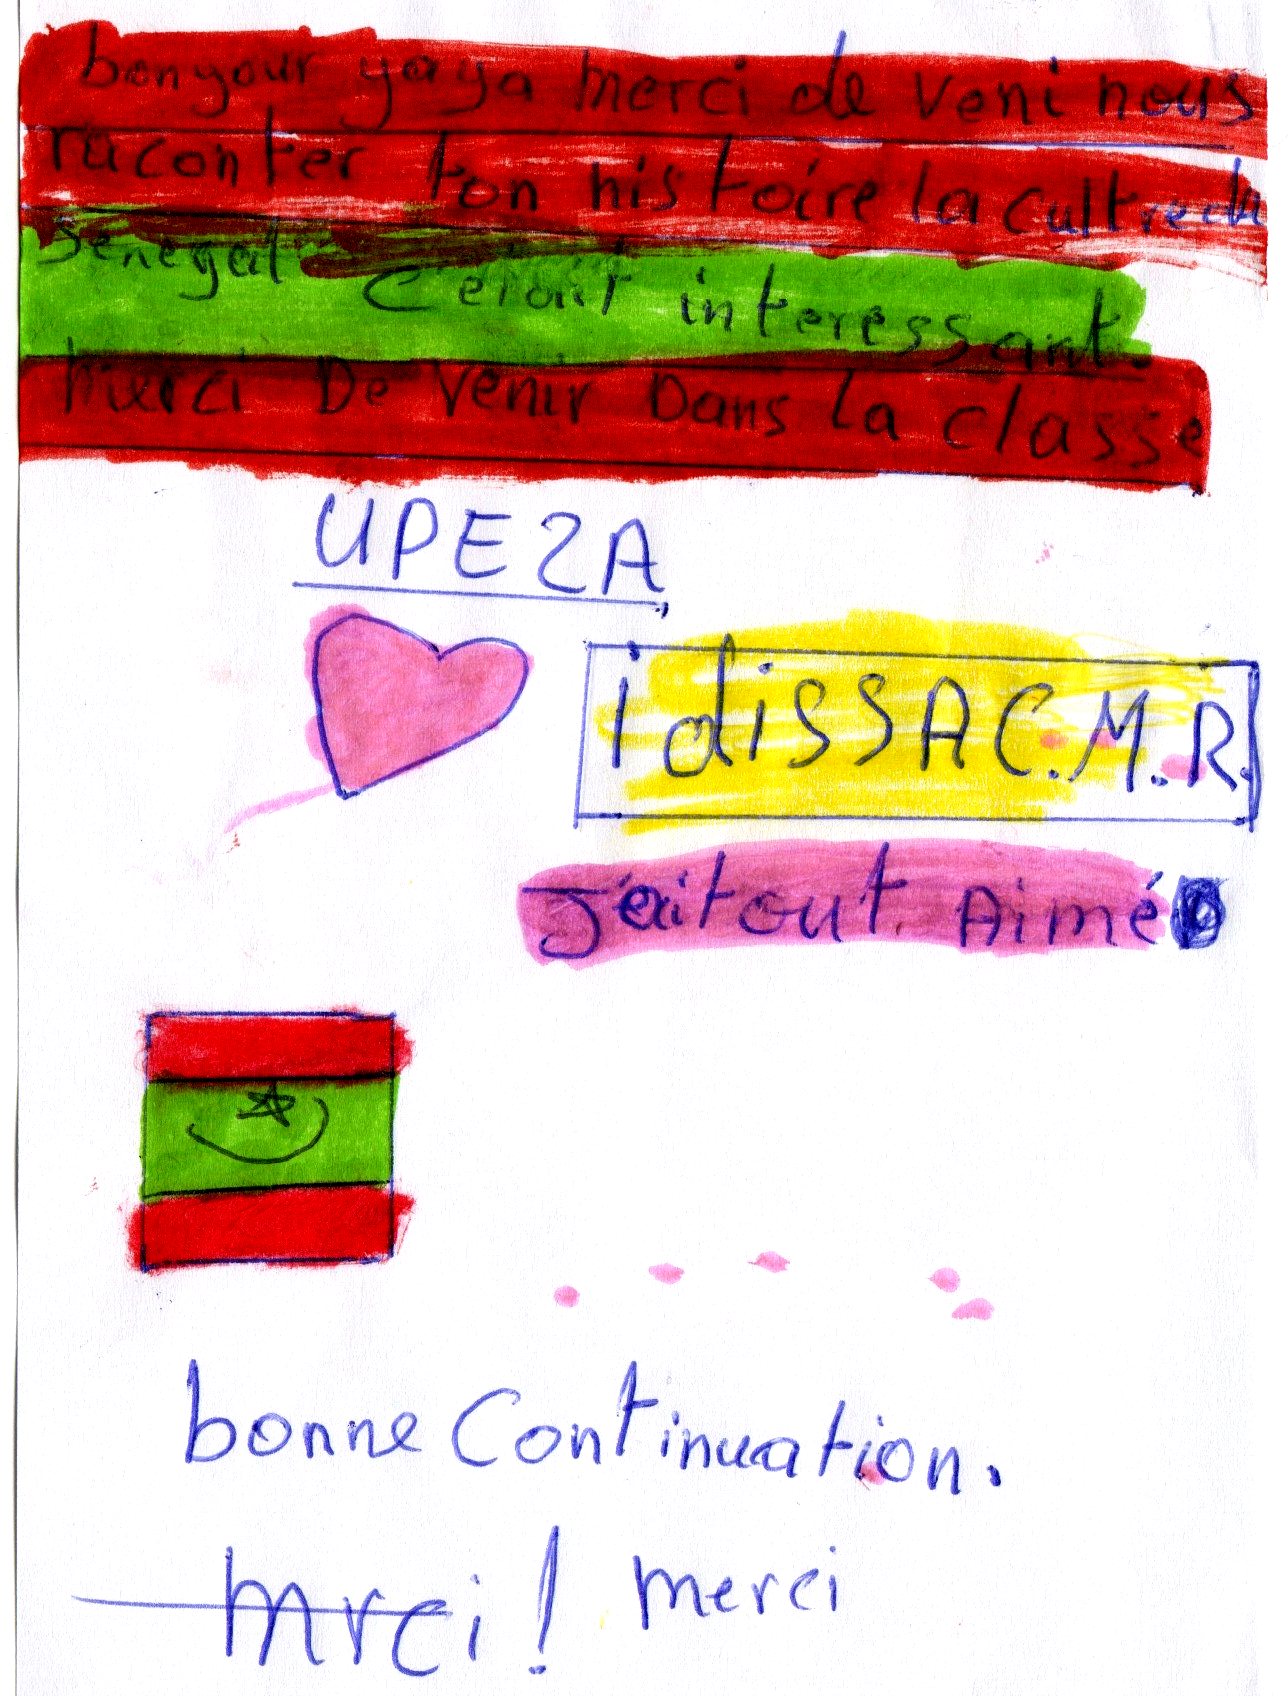 bonyour yaya merci de veni nous
raconter ton histoire la cultre du
sénégal c'était interessant.
merci De venir Dans la classe
UPE2A
idissAC.M.R.
J'ai tout Aimé
bonne Continuation.
mrci! merci